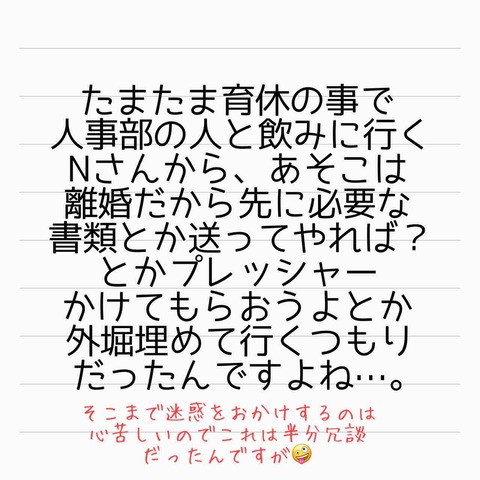 たまたま育休の事で
人事部の人と飲みに行く
Nさんから、あそこは
離婚だから先に必要な
書類とか送ってやれば？
とかプレッシャー
かけてもらおうよとか
外堀埋めて行くつもり
だったんですよね…。
そこまで迷惑をおかけするのは
心苦しいのでこれは半分冗談
だったんですが🤪